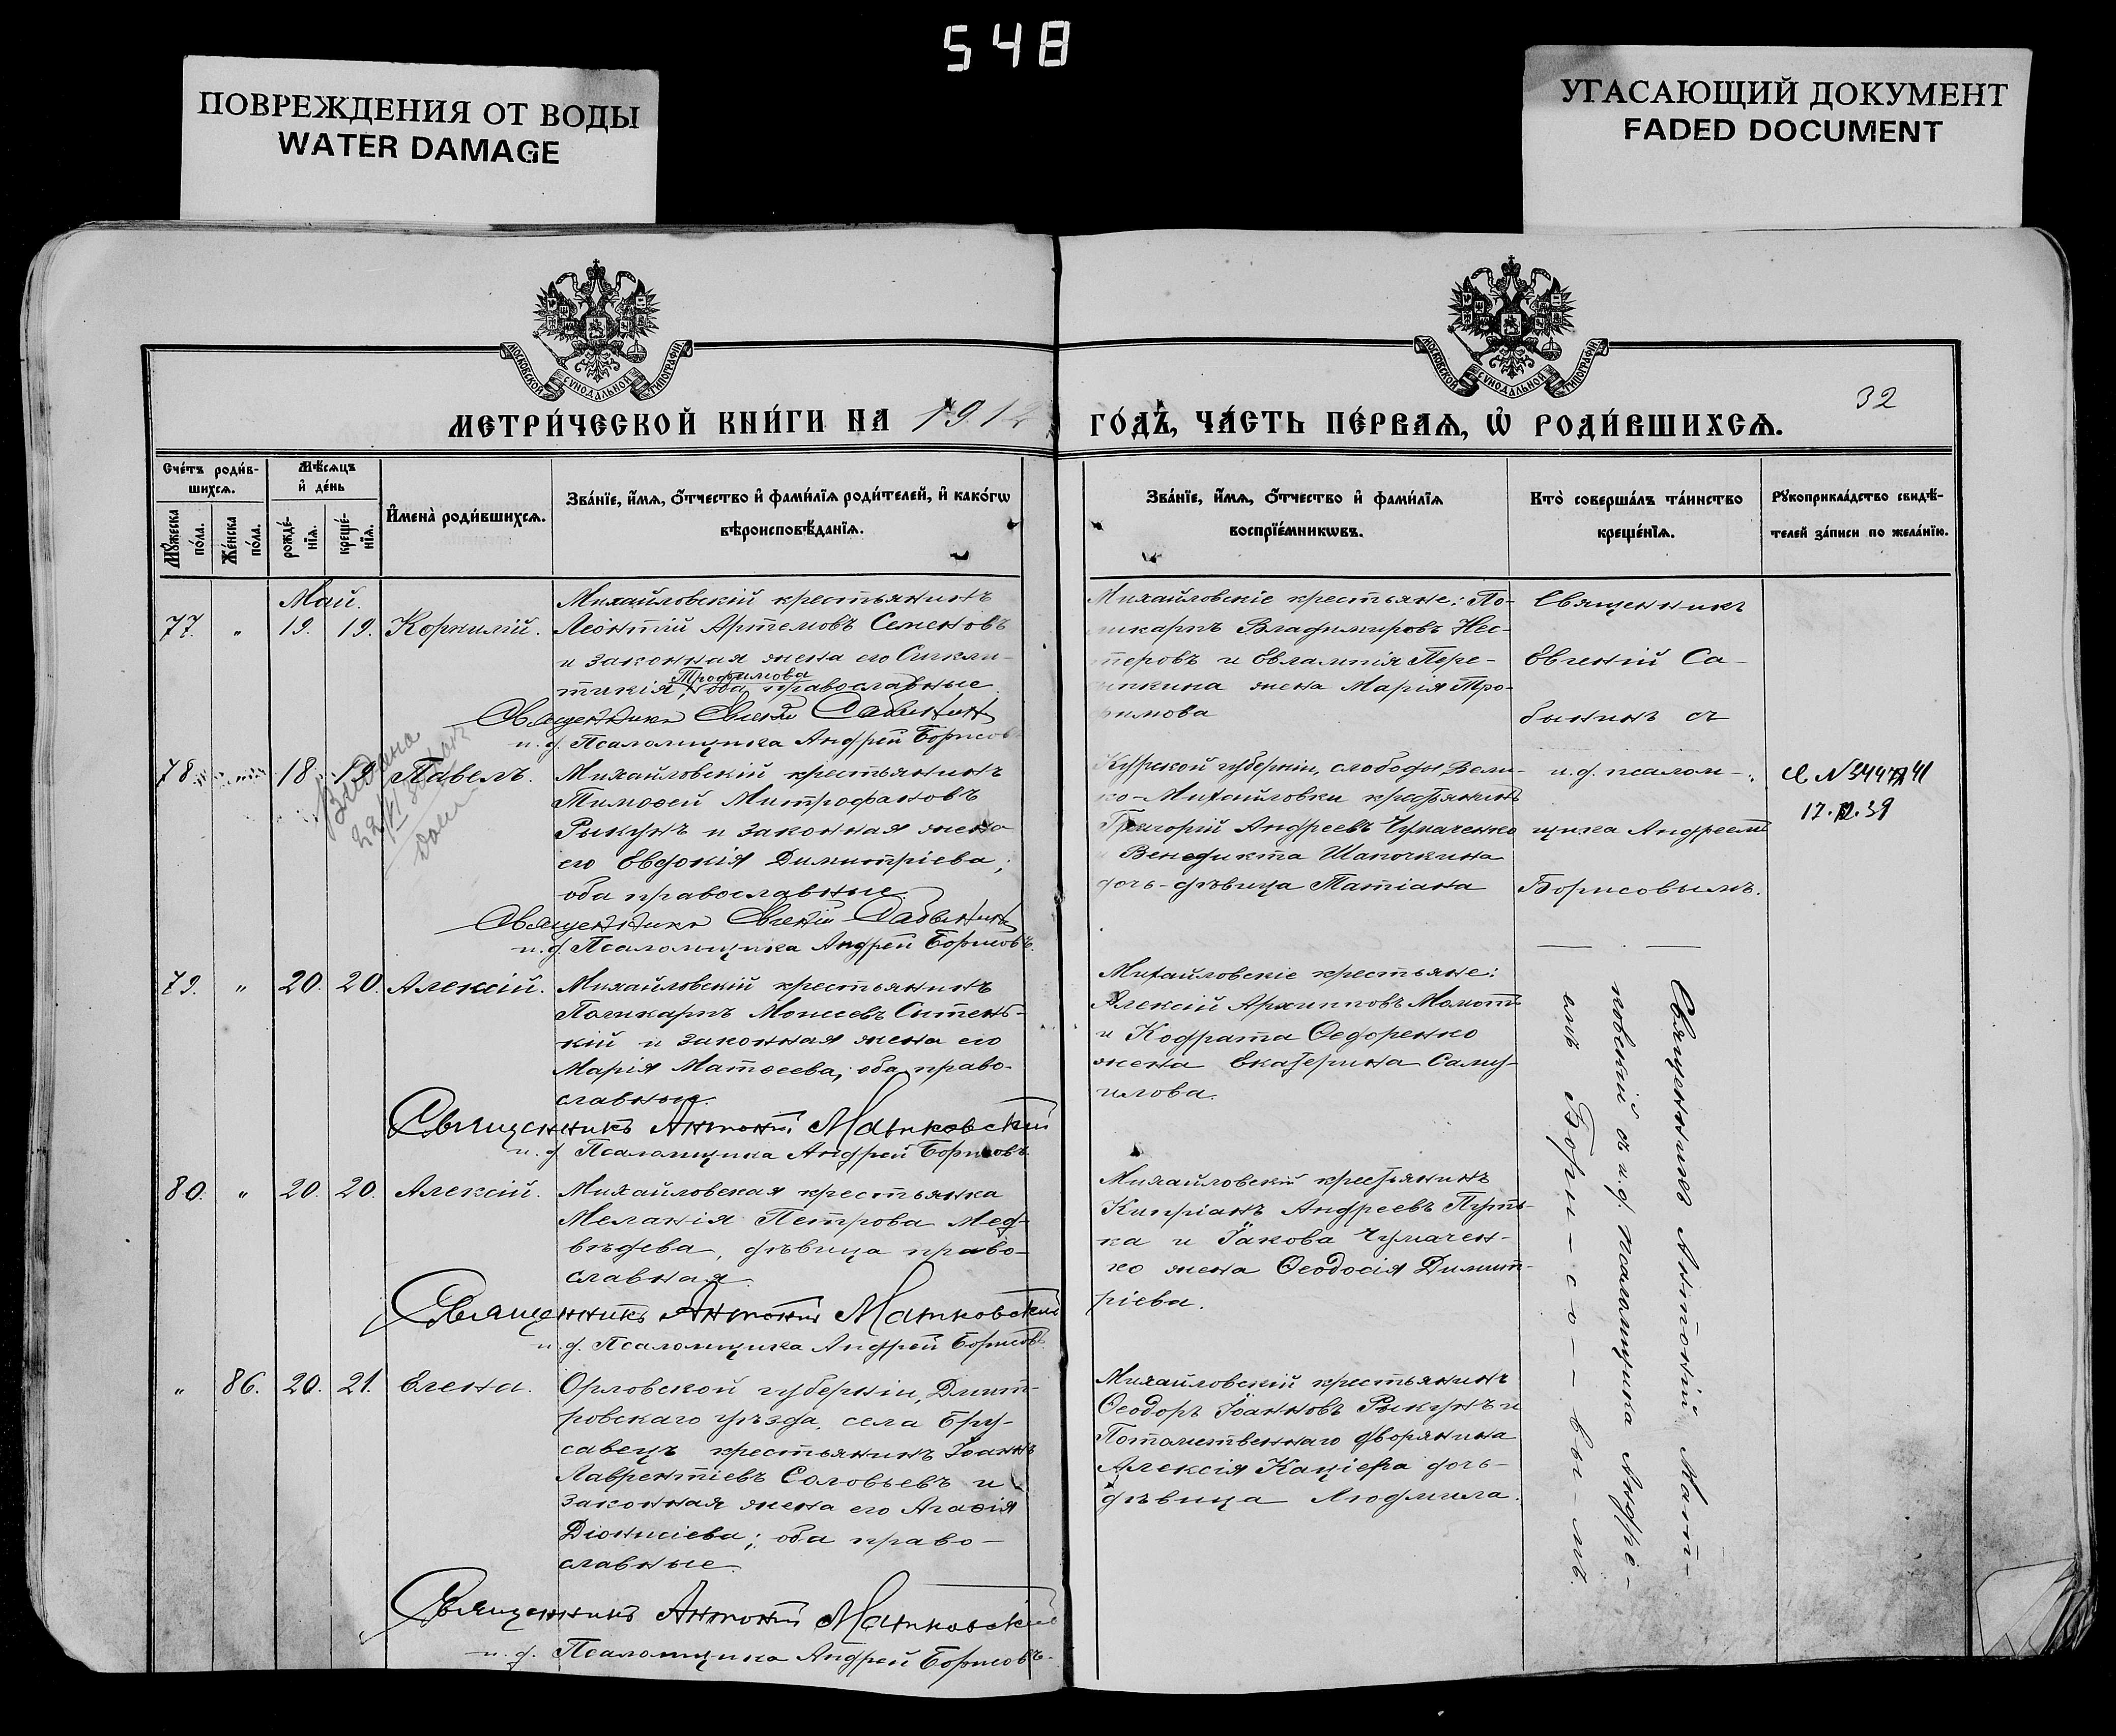 548
ПОВРЕЖДЕНИЯ ОТ ВОДЫ
WATER DAMAGE
УГАСАЮЩИЙ ДОКУМЕНТ
FADED DOCUMENT
МОСКОВСКОЙ СѴНОДАЛЬНОЙ ТИПОГРАФІИ
МОСКОВСКОЙ СѴНОДАЛЬНОЙ ТИПОГРАФІИ
32
МЕТРИ́ЧЕСКОЙ КНИ́ГИ НА 191
ГО́ДЪ, ЧА́СТЬ ПЕ́РВАѦ, Ѡ҆ РОДИ́ВШИХСѦ.
Сче́тъ роди́в-
шихсѧ.
Мѣ́сѧцъ
и҆ де́нь
И҆мена̀ роди́вшихсѧ.
Зва́нїе, и҆́мѧ, ѻ҆́тчество и҆ фами́лїѧ роди́телей, и҆ како́гѡ
вѣроисповѣ́данїѧ.
Мꙋ́жеска
по́ла.
Же́нска
по́ла.
рожде́-
нїѧ.
креще́-
нїѧ.
Зва́нїе, и҆́мѧ, ѻ҆́тчество и҆ фами́лїѧ
воспрїе́мникѡвъ.
Кто̀ соверша́лъ та́инство
креще́нїѧ.
Рꙋкоприкла́дство свидѣ́-
телей за́писи по жела́нїю.
Май.
77. " 19. 19. Корнилій.
Михайловскій крестьянинъ
Леонтій Артемовъ Семеновъ
и законная жена его Сикли-
тикія Трофимова, оба православные
Священникъ Евгеній Сабынин
и. д. Псаломщика Андрей Борисовъ
Михайловскіе крестьяне: По-
ликарпъ Владимировъ Нес-
теровъ и Евлампія Пере-
жена Марія Тро-
фимова
Священникъ
Евгеній Са-
бынинъ съ
и. д. псалом-
щика Андреемъ
Борисовымъ.
78. 18. 19. Павелъ.
Выдана
22/VI
Михайловскій крестьянинъ
Тимоѳей Митрофановъ
Рыкунъ и законная жена
его Евдокія Димитріева;
оба православные.
Священникъ Евгеній Сабынин
и. д. Псаломщика Андрей Борисовъ.
Курской губерніи, слободы Вели-
ко-Михайловки крестьянинъ
Григорій Андреевъ Чумаченко
и Венедикта Шапочкина
дочь-дѣвица Татіана
41
17. 39
79. " 20. 20. Алексій.
Михайловскій крестьянинъ
Поликарпъ Моисеевъ Ситень-
кій и законная жена его
Марія Матѳеева; оба право-
славные.
Священникъ Антоній Матковскій
и. д. Псаломщика Андрей Борисовъ
Михайловскіе крестьяне:
Алексій Архипповъ Момотъ
и Кодрата Ѳедоренко
жена Екатерина Саму-
илова.
Священникъ Антоній Мат-
ковскій съ и. д. псаломщика Андре-
емъ Бори-со-вы-мъ.
80. " 20. 20. Алексій.
Михайловская крестьянка
Меланія Петрова Мед-
вѣдева, дѣвица право-
славная.
Священникъ Антоній Матковскій
и. д. Псаломщика Андрей Борисовъ
Михайловскій крестьянинъ
Кипріанъ Андреевъ Путь-
ка и Іакова Чумачен-
ко жена Ѳеодосія Димит-
ріева.
" 86. 20. 21. Елена.
Орловской губерніи, Дмит-
ровскаго уѣзда, села Бру-
савецъ крестьянинъ Іоаннъ
Лаврентіевъ Соловьевъ и
законная жена его Агаѳія
Діонисіева; оба право-
славные.
Священникъ Антоній Матковскій
и. д. Псаломщика Андрей Борисовъ.
Михайловскій крестьянинъ
Ѳеодоръ Іоанновъ Рыкунъ и
Потомственнаго дворянина
Алексія Кацієра дочь-
дѣвица Людмила.